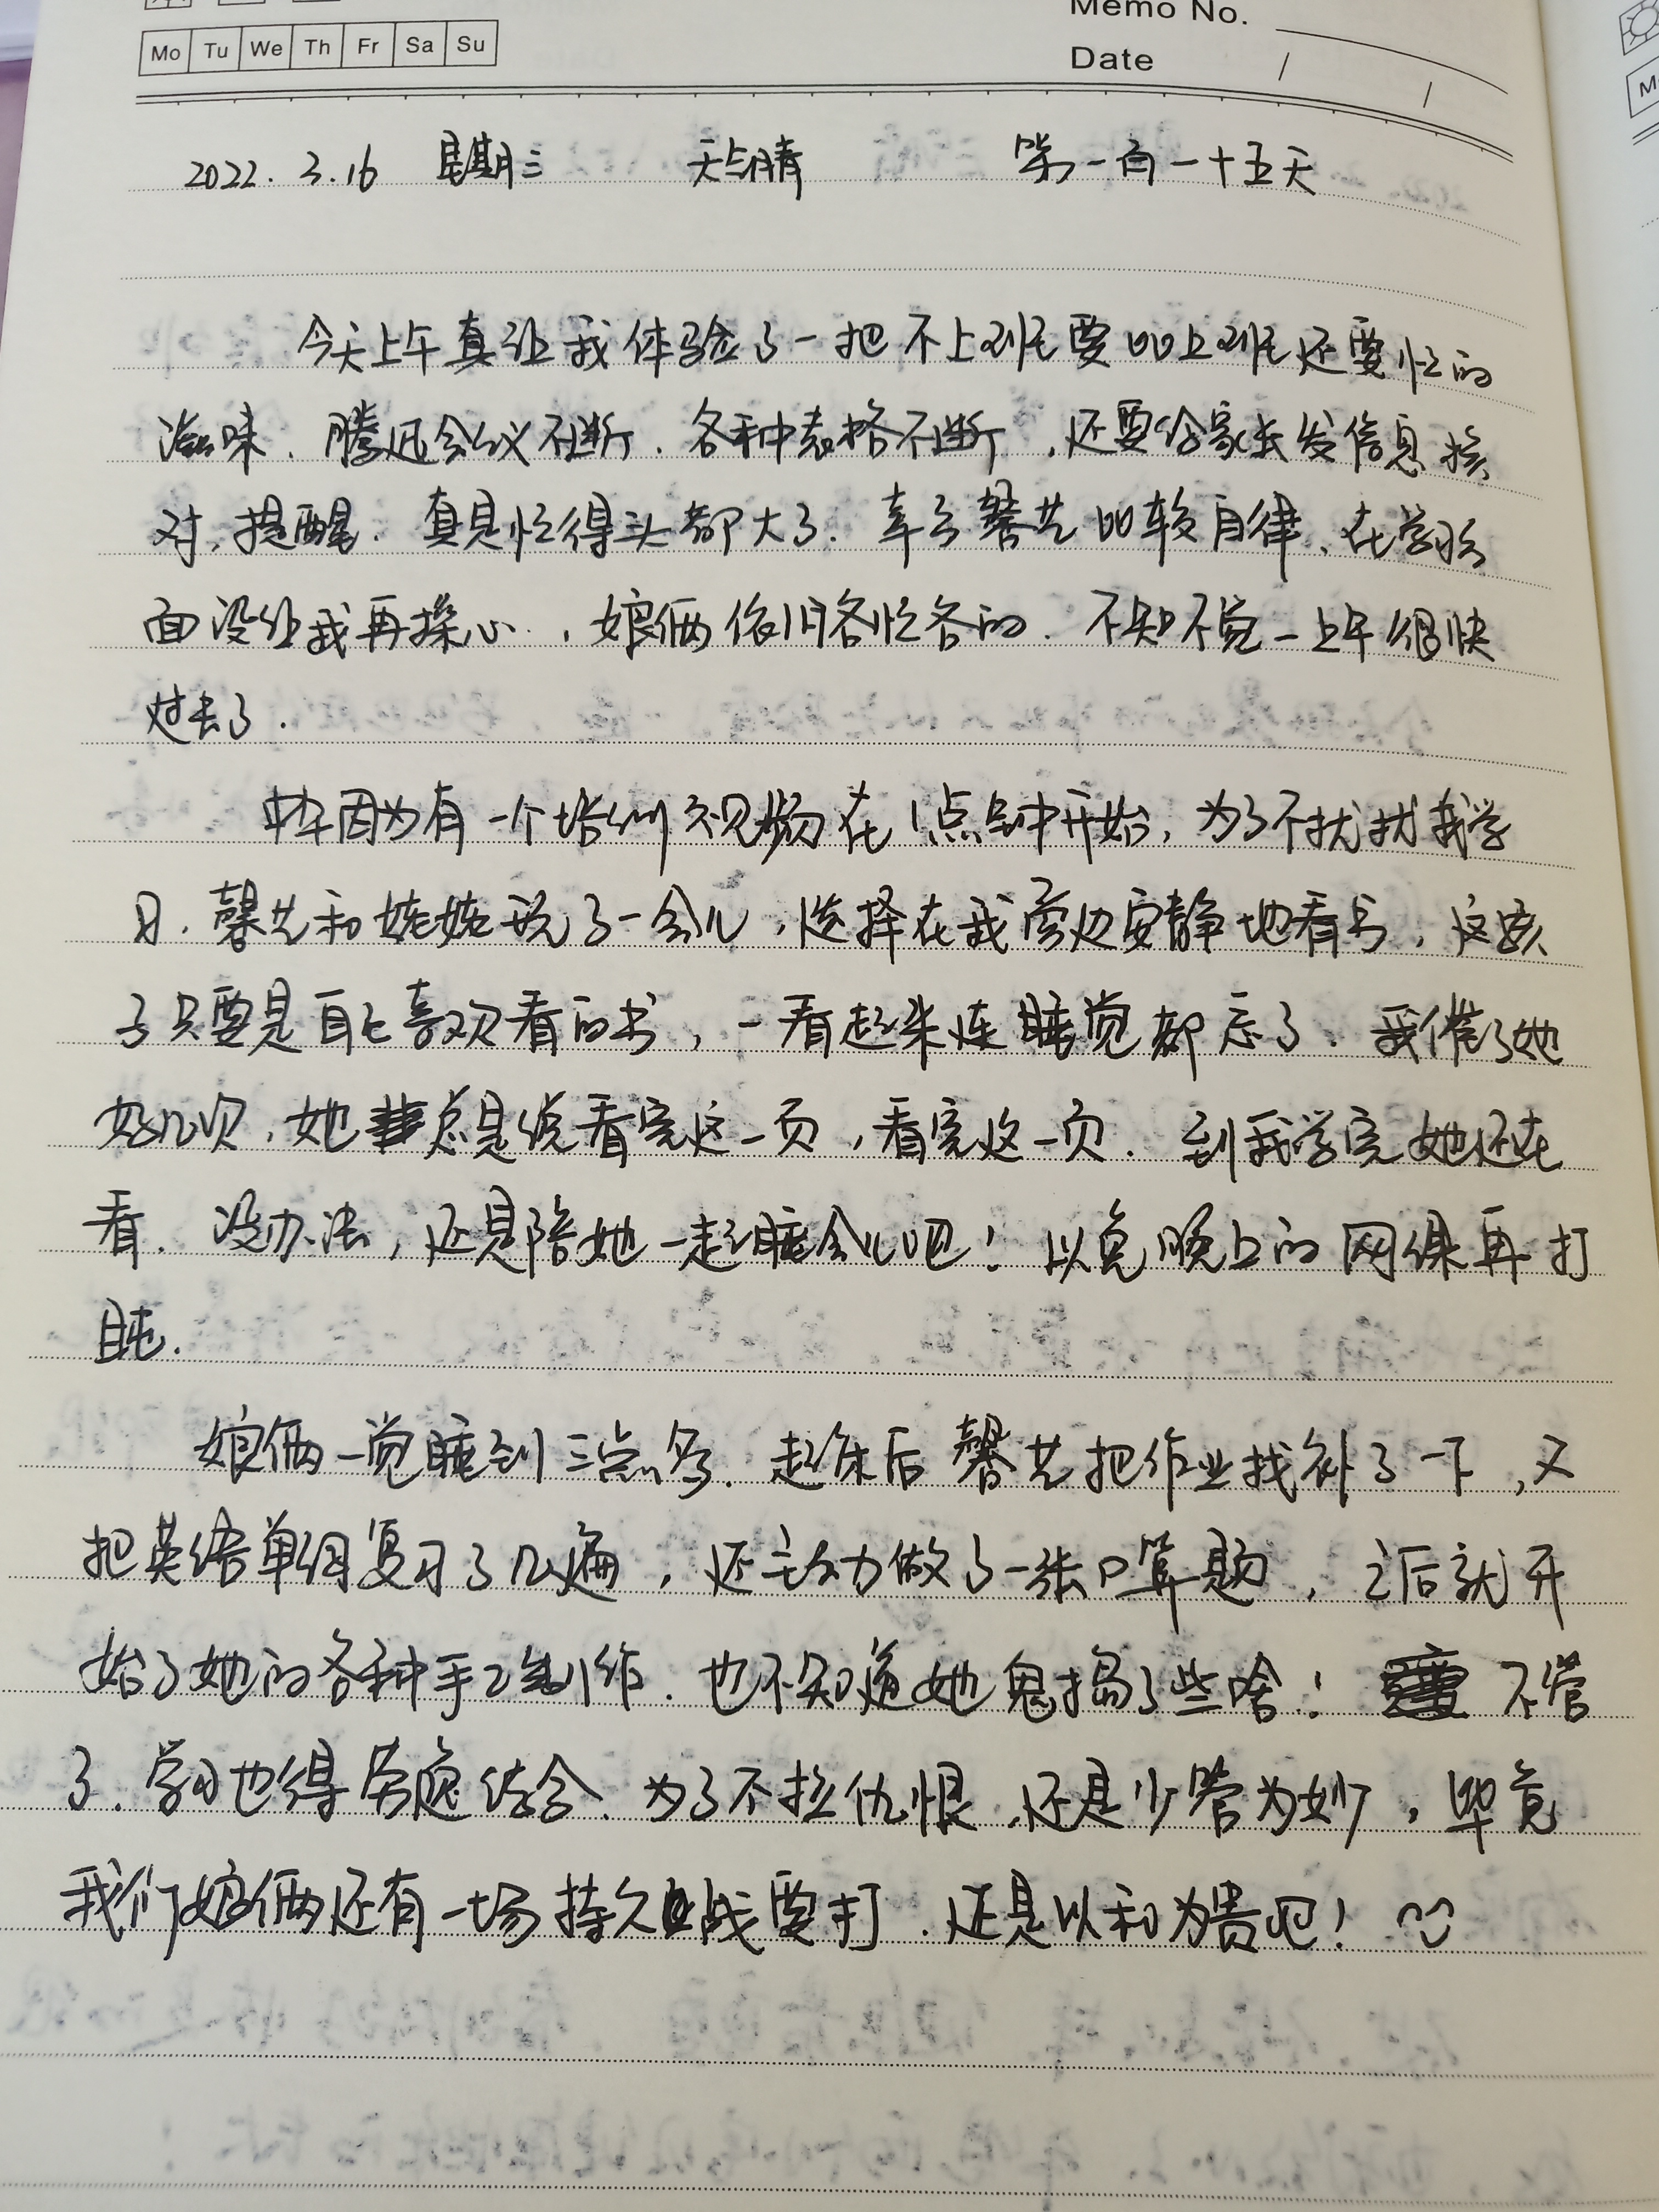 Memo No.
Mo Tu We Th Fr Sa Su
Date / /
2022.3.16 星期三 天气晴 第一百一十五天
今天上午真让我体验了一把不上班要比上班还要忙的
滋味.腾迅会议不断.各种表格不断,还要给家长发信息核
对,提醒.真是忙得头都大了.幸亏馨艺比较自律,在学习
面没让我再操心.,娘俩依旧各忙各的.不知不觉一上午很快
过去了.
中午因为有一个培训视频在1点钟开始,为了不扰扰我学
习.馨艺和姥姥玩了一会儿,选择在我旁边安静地看书,这孩
子只要是自己喜欢看的书,一看起来连睡觉都忘了.我催了她
好几次,她总是说看完这一页,看完这一页.到我学完她还在
看.没办法,还是陪她一起睡会儿吧!以免晚上的网课再打
盹.
娘俩一觉睡到三点多.起床后馨艺把作业找补了一下,又
把英语单词复习了几遍,还主动做了一张口算题,之后就开
始了她的各种手工制作.也不知道她鬼捣了些啥!不管
了.学习也得劳逸结合.为了不拉仇恨.还是少管为妙,毕竟
我们娘俩还有一场持久战要打.还是以和为贵吧!